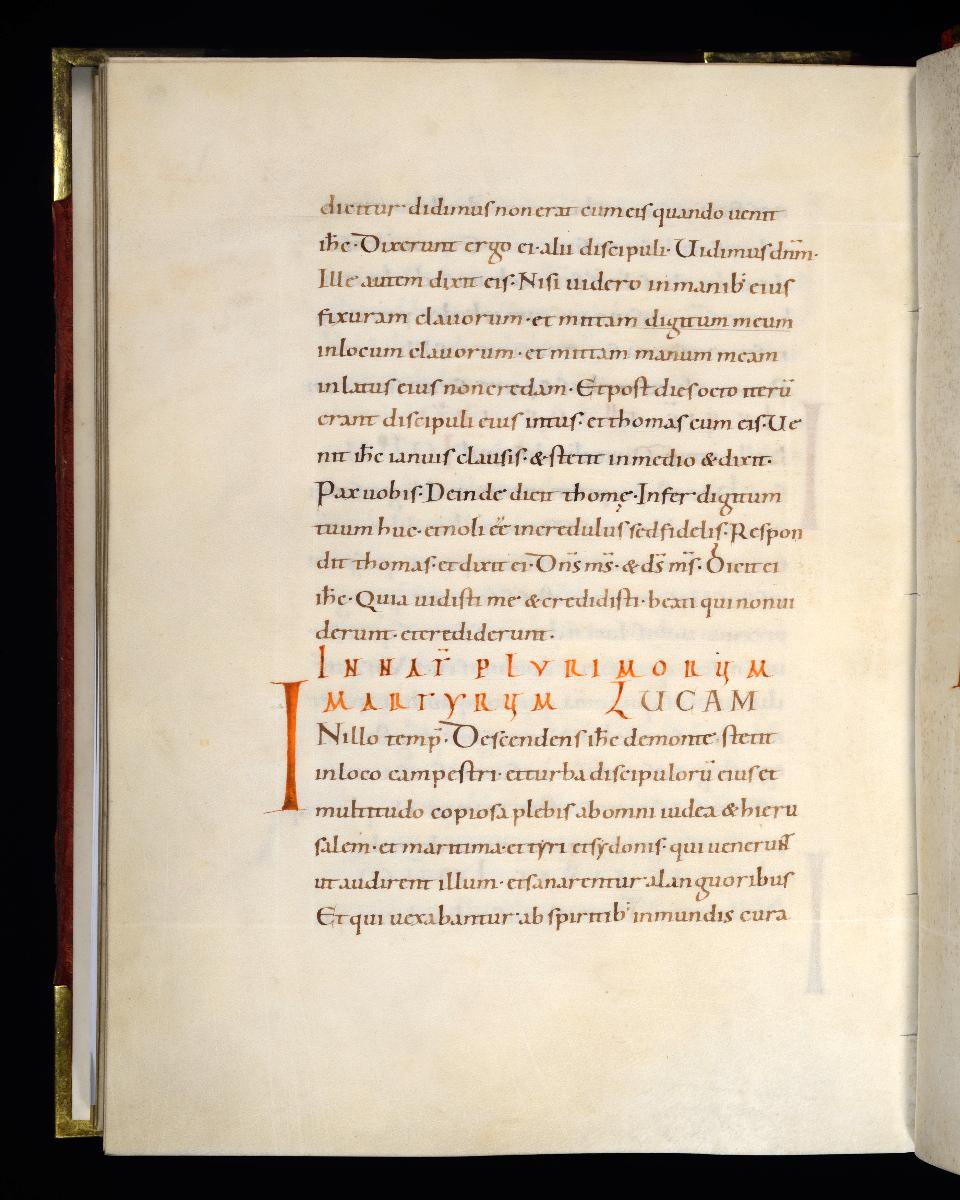 dicitur· didimus non erat cum eis quando uenit
ihc· Dixerunt ergo ei· alii discipuli· Uidimus dnm·
Ille autem dixit eis· Nisi uidero in manib; eius
fixuram clauorum· et mittam digitum meum
in locum clauorum· et mittam manum meam
in latus eius non credam· Et post dies octo iterū
erant discipuli eius intus· et thomas cum eis· Ue
nit ihc ianuis clausis· & stetit in medio & dixit·
Pax uobis· Deinde dicit thomę· Infer digitum
tuum huc· et noli eē incredulus sed fidelis· Respon
dit thomas· et dixit ei· Dn̄s ms̄· & ds̄ ms̄· Dicit ei
ihc· Quia uidisti me & credidisti· beati qui non ui
derunt· et crediderunt·
IN NAT̄ PLVRIMORUM
MARTYRUM LUCAM
INillo temp̄· Descendens ihc de monte· stetit
in loco campestri· et turba discipulorū eius et
multitudo copiosa plebis ab omni iudea & hieru
salem· et maritima· et tyri et sydonis· qui uenerunt
ut audirent illum· et sanarentur a languoribus
Et qui uexabantur· ab spiritib; inmundis cura